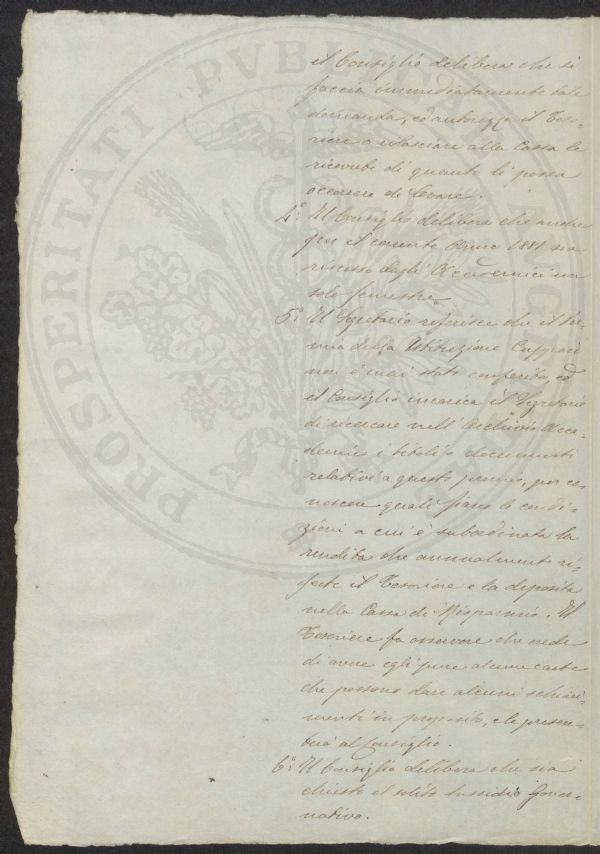 il Consiglio delibera che si
faccia immediatamente tale
domanda, ed autorizza il Teso-
riere a rilasciare alla Cassa le
ricevute di quanto li possa
occorrere di levare.
4.° Il Consiglio delibera che anche
per il corrente Anno 1881 sia
riscosso dagli Accademici un
solo semestre.
5.° Il Segretario riferisce che il Pre-
mio della Istituzione Cuppari
non è mai stato conferito, ed
il Consiglio incarica il Segretario
di ricercare nell'Archivio Acca-
demico i titoli o documenti
relativi a questo premio, per co-
noscere quali siano le condi-
zioni a cui è subordinata la
rendita che annualmente ri-
scote il Tesoriere e la deposita
nella Cassa di Risparmio. Il
Tesoriere fa osservare che crede
di avere egli pure alcune carte
che possono dare alcuni schiari-
menti in proposito, e le presen-
terà al Consiglio.
6.° Il Consiglio delibera che sia
chiesto il solito sussidio Gover-
nativo.
PROSPERITATI PVBLICAE AVGE